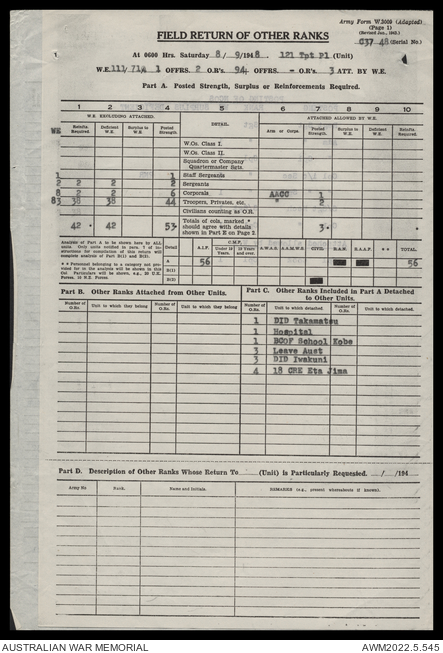 Army Form W.3009 (Adapted)
(Page 1)
(Revised Jan., 1945.)
FIELD RETURN OF OTHER RANKS
C37 48 (Serial No.)
At 0600 Hrs. Saturday 8/ 9/194 8. 121 Tpt Pl (Unit)
W.E. 111/ 71A 1 OFFRS. 2 O.R's. 94 OFFRS. - O.R's. 3 ATT. BY W.E.
Part A. Posted Strength, Surplus or Reinforcements Required.
1 2 3 4 5 6 7 8 9 10
W.E. EXCLUDING ATTACHED. DETAIL. ATTACHED ALLOWED BY W.E.
WE Reinfts. Required. Deficient W.E. Surplus to W.E. Posted Strength Arms or Corps. Reinfts. Required. Deficient W.E. Surplus to W.E. Posted Strength
W.Os. Class I.
W.Os. Class II.
Squadron or Company Quartermaster Sgts.
1 1 Staff Sergeants
2 2 2 2 Sergeants
8 2 2 6 Corporals AACC 1
83 38 38 44 Troopers, Privates, etc. " 2
Civilians counting as O.R.
42 42 53 Totals of cols. marked * should agree with details shown in Part E on Page 2. 3
Analysis of Part A to be shown here by ALL units.
Detail A.I.F. C.M.F. Under 19 Years. 19 Years and over. A.W.A.S. A.A.M.W.S. CIVIL. R.A.N. R.A.A.F. * * TOTAL.
A 56 56
B(1)
B(2)
Part B. Other Ranks Attached from Other Units.
Number of O.Rs. Unit to which they belong. Number of O.Rs. Unit to which they belong.
Part C. Other Ranks Included in Part A Detached to Other Units.
Number of O.Rs. Unit to which detached. Number of O.Rs. Unit to which detached.
1 DID Takamatsu
1 Hospital
1 BCOF School Kobe
3 Leave Aust
3 DID Iwakuni
4 18 CRE Eta Jima
Part D. Description of Other Ranks Whose Return To (Unit) is Particularly Requested. / /194
Army No. Rank. Name and Initials. REMARKS (e.g., present whereabouts if known).
AUSTRALIAN WAR MEMORIAL AWM2022.5.545